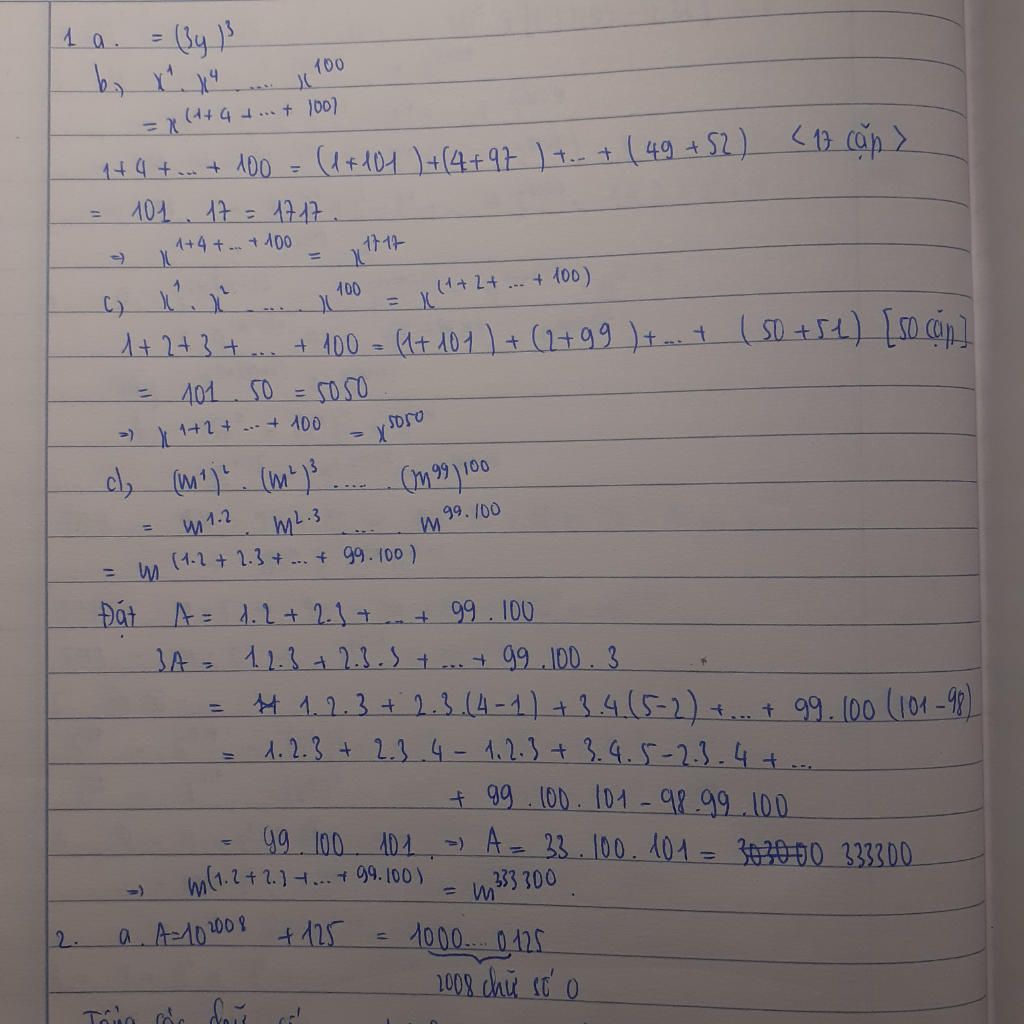 1 a. = (3y)³
b, x¹ . x⁴ ..... x¹⁰⁰
= x^(1+4+...+100)
1+4+...+100 = (1+101)+(4+97)+...+(49+52) <17 cặp>
= 101 . 17 = 1717.
=> x^1+4+...+100 = x¹⁷¹⁷
c, x¹ . x² ..... x¹⁰⁰ = x^(1+2+...+100)
1+2+3+...+100 = (1+101)+(2+99)+...+(50+51) [50 cặp]
= 101 . 50 = 5050
=> x^1+2+...+100 = x⁵⁰⁵⁰
d, (m¹)² . (m²)³ ..... (m⁹⁹)¹⁰⁰
= m^1.2 . m^2.3 ..... m^99.100
= m^(1.2+2.3+...+99.100)
Đặt A = 1.2+2.3+...+99.100
3A = 1.2.3+2.3.3+...+99.100.3
= 1.2.3+2.3.(4-1)+3.4.(5-2)+...+99.100(101-98)
= 1.2.3+2.3.4-1.2.3+3.4.5-2.3.4+...
+ 99.100.101-98.99.100
= 99.100.101. => A = 33.100.101 = 333300
=> m^(1.2+2.3+...+99.100) = m³³³³⁰⁰.
2. a. A=10²⁰⁰⁸ + 125 = 1000....0125
2008 chữ số 0
Tổng các chữ số